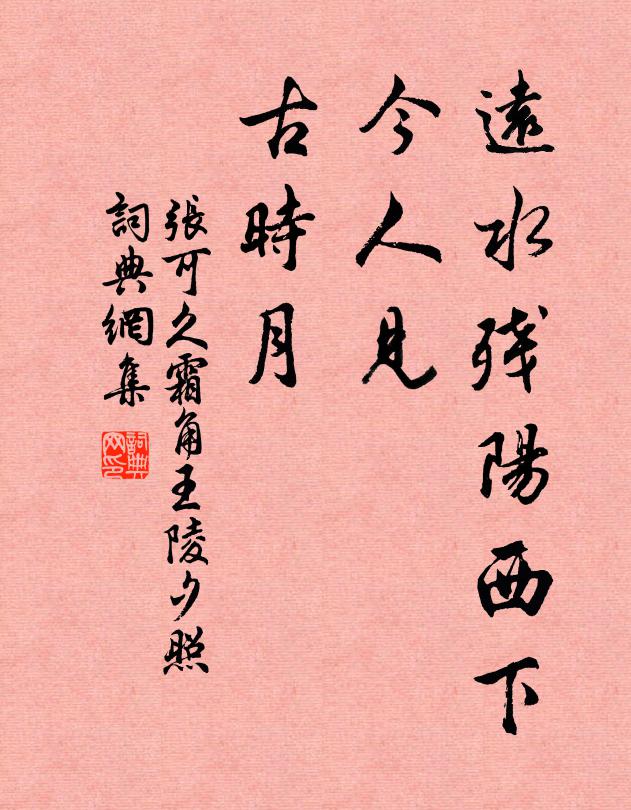 遠水残陽西下
今人見
古時月
張可久霜角王陵夕照
詞典網集
詞典網印